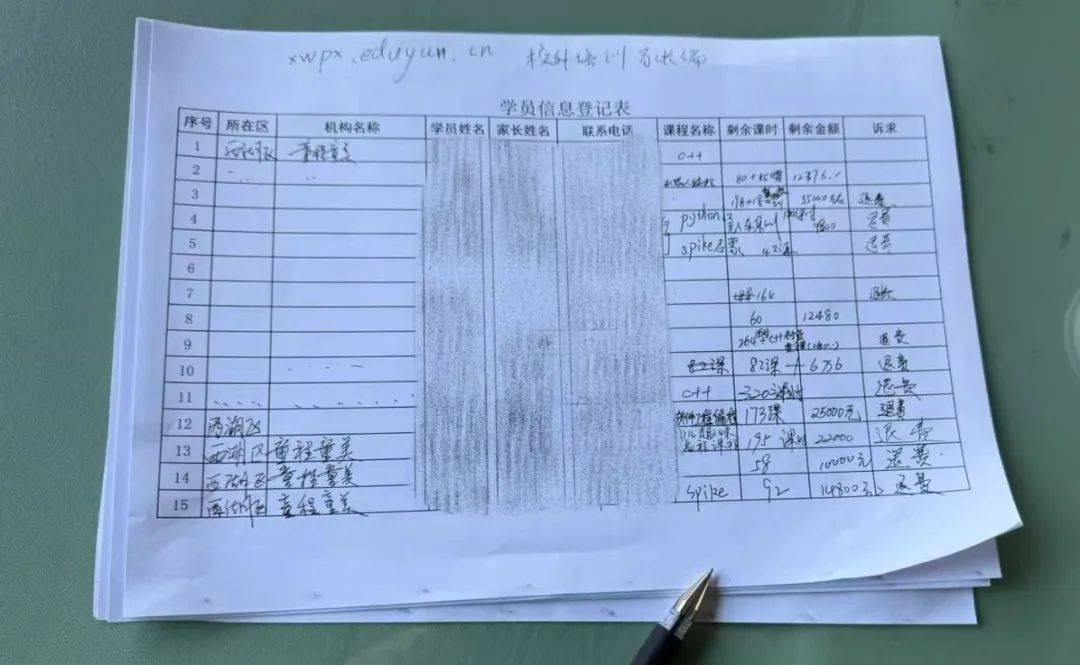 xwpx.eduyun.cn 校外培训家长端
学员信息登记表
序号 所在区 机构名称 学员姓名 家长姓名 联系电话 课程名称 剩余课时 剩余金额 诉求
1 西湖区 童程童美 C++
2 80+15赠 12376
3 35000元 退费
4 python 9800 退费
5 spike启蒙 42课 退费
6
7 164 退费
8 60 12480
9 264 退费
10 82课 82课 6万6 退费
11 C++ 320课时 退费
12 西湖区 软件工程编程 173课 25000元 退费
13 西湖区 童程童美 195课时 22000 退费
14 西湖区 童程童美 58 10000元 退费
15 西湖区 童程童美 spike 92 14800元 退费